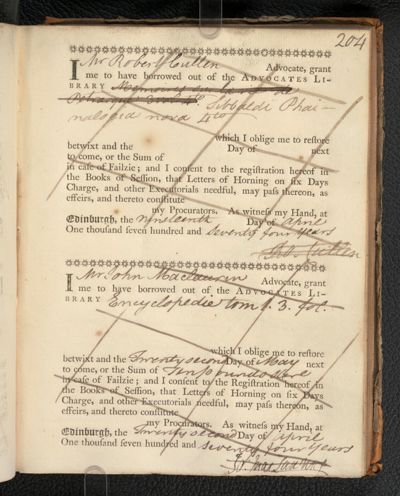 204
I Mr Robert Cullen Advocate, grant
me to have borrowed out of the ADVOCATES LI-
BRARY
Sibbaldi Phai-
nalogia nova 4to
which I oblige me to restore
betwixt and the Day of next
to come, or the Sum of
in case of Failzie; and I consent to the registration hereof in
the Books of Session, that Letters of Horning on six Days
Charge, and other Executorials needful, may pass thereon, as
effeirs, and thereto constitute
my Procurators. As witness my Hand, at
Edinburgh, the nineteenth Day of April
One thousand seven hundred and seventy four years
Ro. Cullen
I Mr John Maclauren Advocate, grant
me to have borrowed out of the ADVOCATES LI-
BRARY Encyclopedie tom 1. 3. fol.
which I oblige me to restore
betwixt and the Twenty second Day of May next
to come, or the Sum of Ten pounds ster
in case of Failzie; and I consent to the Registration hereof in
the Books of Session, that Letters of Horning on six Days
Charge, and other Executorials needful, may pass thereon, as
effeirs, and thereto constitute
my Procurators. As witness my Hand, at
Edinburgh, the Twenty second Day of April
One thousand seven hundred and seventy four years